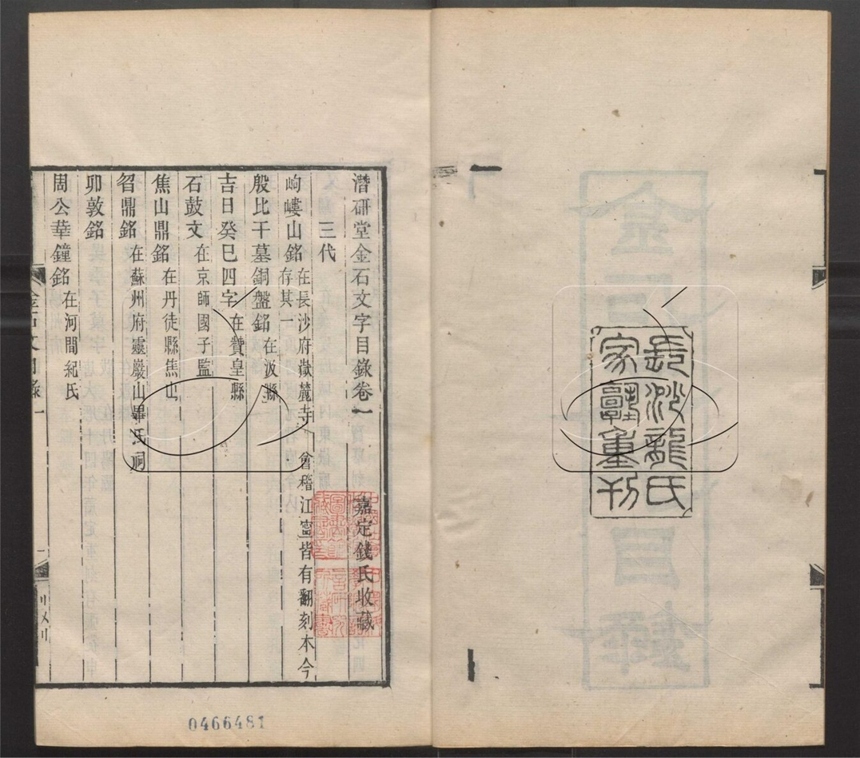 長沙龍氏
家塾重刊
潛研堂金石文字目錄卷一
嘉定錢氏收藏
三代
岣嶁山銘 在長沙府嶽麓寺 會稽江寧皆有翻刻本今
存其一
殷比干墓銅盤銘 在汲縣
吉日癸巳四字 在贊皇縣
石鼓文 在京師國子監
焦山鼎銘 在丹徒縣焦山
曶鼎銘 在蘇州府靈巖山畢氏祠
卯敦銘
周公華鐘銘 在河間紀氏
金石文目錄一
一
0466481